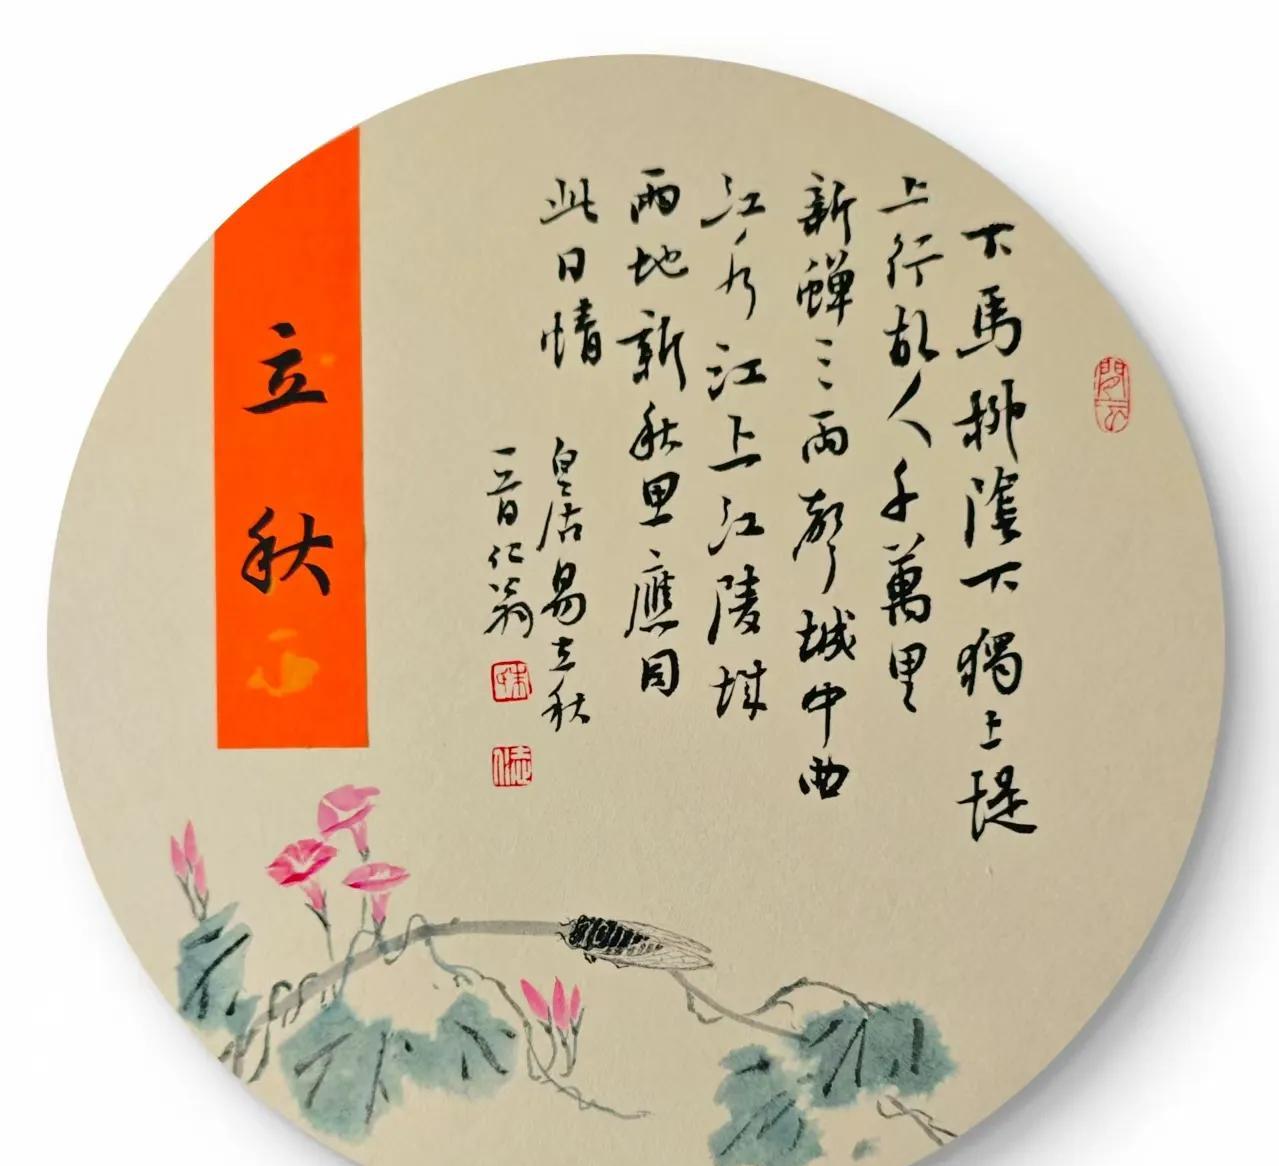 下馬柳陰下獨上堤
上行故人千萬里
新蟬三兩聲城中曲
江水江上江陵城
兩地新秋思應同
此日情
白居易立秋
仁翁
立秋